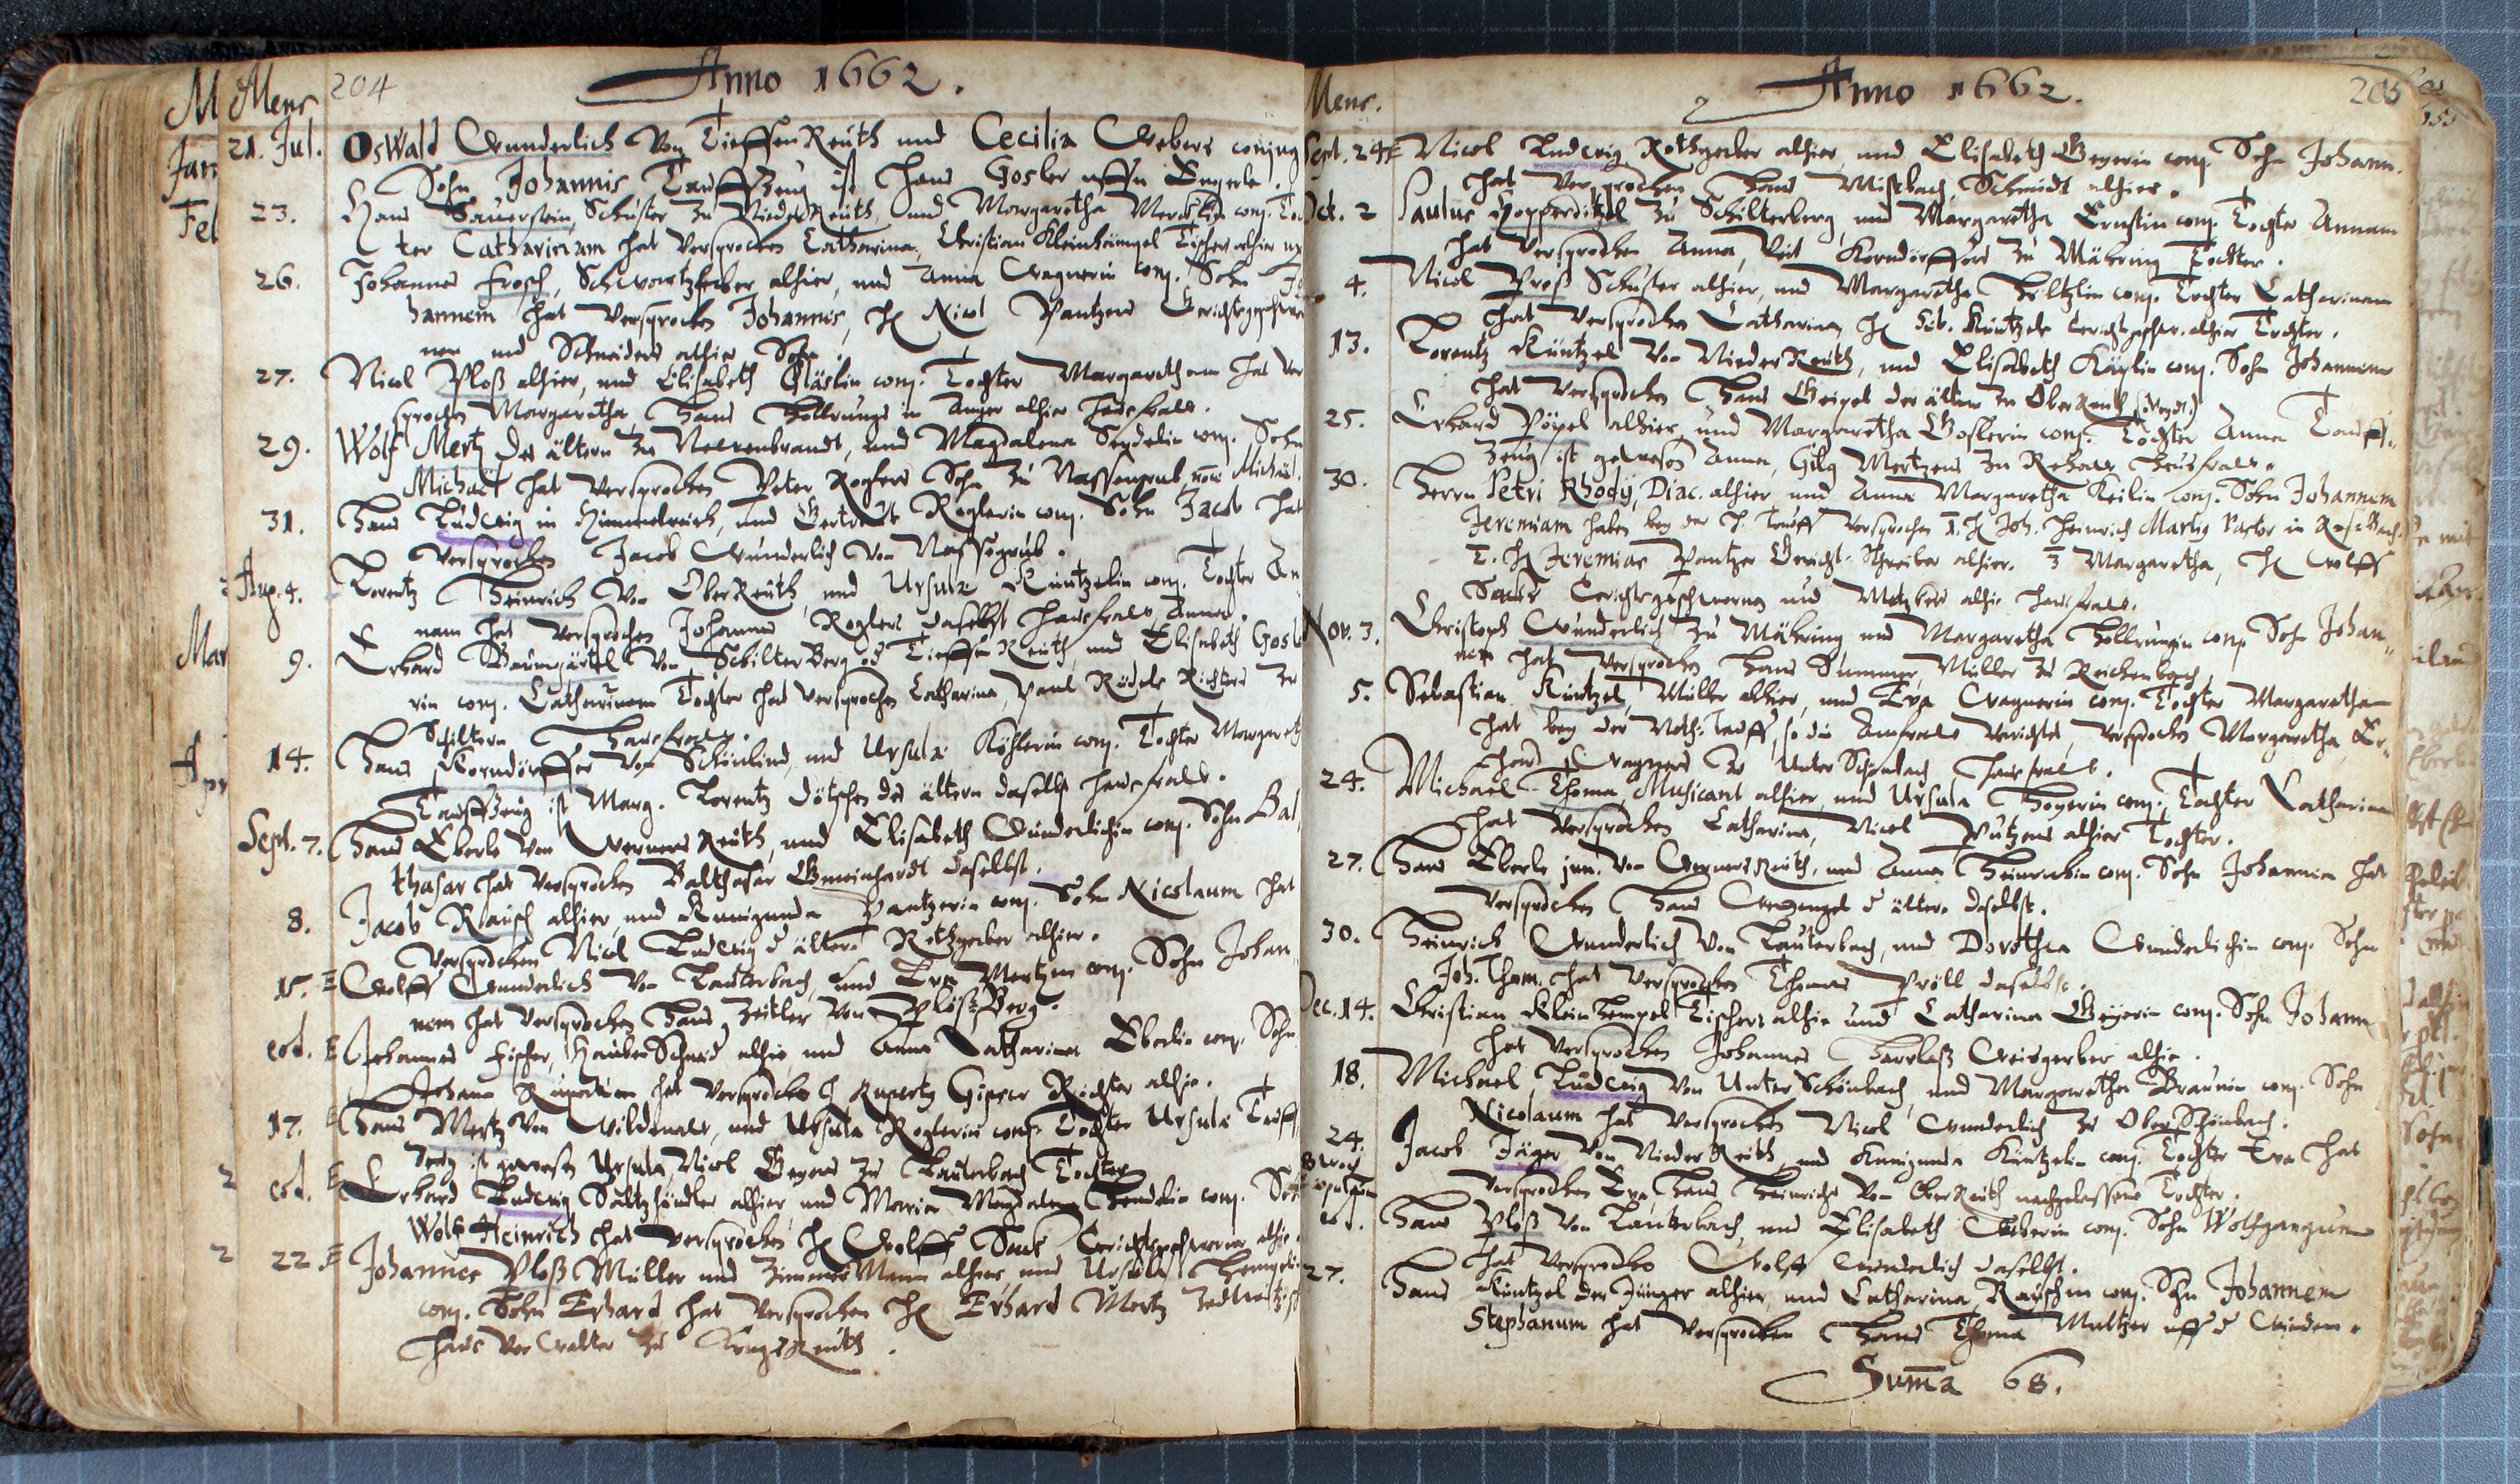 Mens 204 Anno 1662.
21. Jul. Oswald Wunderlich Von TieffenReuth und Cecilia Webers conjug
Sohn Johannis Tauffzeug ist Hans Gosler uffn Engerle.
23. Hans Sauerstein, Schuster zu NiederReuth, und Margaretha conj. Toch
ter Catharinam hat Versprochen Catharina, Christian Kleinhämpel Tischer alhier
26. Johannes Frosch, Schwartzferber alhier, und Anna Wagnerin conj. Sohn Jo
hannem hat Versprochen Johannes, H Nicol Pantzers Gerichtsgeschwor
nen und Schneiders alhier Sohn.
27. Nicol Ploß alhier, und Elisabeth conj. Tochter Margaretham hat Ver
sprochen Margaretha, Hans Hollrungs in Anger alhier Hausfraw.
29. Wolf Mertz der ältern zu Neuenbrandt, und Magdalena Seydelin conj. Sohn
Michael hat Versprochen Peter Roglers Sohn zu Nassengrub, Michael.
31. Hans Ludwig in Himmelreich, und Gertraut Roglerin conj. Sohn Jacob hat
Versprochen Jacob Wunderlich Von Nassegrub.
Aug. 4. Lorentz Heinrich Von OberReuth, und Ursula Küntzelin conj. Tochter An
nam hat Versprochen Johannes Roglers daselbst Hausfraw, Anna.
9. Erhard Baumgärtel Von SchilterBerg TieffenReuth, und Elisabeth Gosle
rin conj. Catharinam Tochter hat Versprochen Catharina, Paul Rödels Richters zu
Schiltern Hausfraw.
14. Hans Korndörffer Von Schönlind, und Ursula Köhlerin conj. Tochter Margareth
Tauffzeug ist Marg. Lorentz Dötschen des ältern daselbst Hausfraw.
Sept. 7. Hans Eberle Von WernersReuth, und Elisabeth Wunderlichin conj. Sohn Bal
thasar hat Versprochen Balthasar Gmeinhardt daselbst.
8. Jacob Rausch alhier, und Kunigunda Pantzerin conj. Sohn Nicolaum hat
Versprochen Nicol Ludwig d ältere Rothgerber alhier.
15. E Wolff Wunderlich Von Lauterbach, und Eva Mertzin conj. Sohn Johan
nem hat Versprochen Hans Zeitler Von PloßBerg.
eod. E Johannes Fischer, alhie, und Anna Catharina Eberlin conj. Sohn
Johann Rupertum hat Versprochen H Rupertg Gipser Richter alhie.
17. E Hans Mertz Von Wildenaw, und Ursula Roglerin conj. Tochter Ursula Tauff
zeug ist gewesen Ursula, Nicol Geyers zu Lauterbach Tochter
eod. E Erhard Ludwig Saltzhändler alhier und Maria Magdalena conj. Sohn
Wolf Heinrich hat Versprochen H Wolff Sack Gerichtsgeschworner alhie
22 E Johannes Ploß Müller und Zimmer Mann alhier, und Ursula
conj. Sohn Erhard hat Versprochen H Erhard Mertz
Haus Verwalter zu KrugsReuth.
Mens. Anno 1662. 205
Sept. 24 E Nicol Ludwig Rothgerber alhier, und Elisabeth Geyerin conj. Sohn Johann.
hat Versprochen Hans Mistbach, Schmidt alhier.
Oct. 2 Paulus Hopperditzel zu Schilterberg, und Margaretha Ernstin conj. Tochter Annam
hat Versprochen Anna, Veit Korndörffers zu Mähring Tochter.
4. Nicol Proß Schuster alhier, und Margaretha conj. Tochter Catharinam
hat Versprochen Catharina, H Seb. Küntzels Gerichtsgschw. alhier Tochter.
13. Lorentz Küntzel Von NiederReuth, und Elisabeth conj. Sohn Johannem
hat Versprochen Hans Geipel der ältere zu OberReuth
25. Erhard Pöpel alhier, und Margaretha Goslerin conj. Tochter Anna Tauff,,
zeug ist gewesen Anna, Gilg Mertzens zu Rehaw Hausfraw.
30. Herrn Petri Rhodij, Diac. alhier, und Anna Margaretha Keilin conj. Sohn Johannem
Jeremiam haben bey der H. Tauff Versprochen 1. H Joh. Heinrich Martig Pastor in RosBach.
2. H Jeremias Pantzer Gerichts Schreiber alhier. 3 Margaretha, H Wolff
Sacks Gerichtsgeschwornen und Metzkers alhie Hausfraw.
Nov. 3. Christoph Wunderlich zu Mähring und Margaretha Hollrungin conj Sohn Johan,,
nem hat Versprochen Hans Summer, Müller zu Reichenbach
5. Sebastian Küntzel, Müller alhier, und Eva Wagnerin conj. Tochter Margaretha
hat bey der Noth-Tauff, so die Amfraw Verrichtet, Versprochen Margaretha, Er,,
hard Wagners zu Unter Schönbach Hausfraw.
24. Michael Thoma, Musicant alhier, und Ursula Hoyerin conj. Tochter Catharina
hat Versprochen Catharina, Nicol Pützens alhier Tochter.
27. Hans Eberle jun. Von WernersReuth, und Anna Heinrichin conj. Sohn Johannem hat
Versprochen Hans d ältere daselbst.
30. Heinrich Wunderlich Von Lauterbach, und Dorothea Wunderlichin conj. Sohn
Joh. Thom. hat Versprochen Thomas Pröll daselbst.
Dec. 14. Christian Kleinhempel Tischer alhie und Catharina Geyerin conj. Sohn Johann
hat Versprochen Johannes Weisgerber alhie.
18. Michael Ludwig Von UnterSchönbach, und Margaretha Braunin conj. Sohn
Nicolaum hat Versprochen Nicol Wunderlich zu OberSchönbach.
24. Jacob Jäger Von NiederReuth, und Kunigunda Küntzelin conj. Tochter Eva hat
Versprochen Eva, Hans Heinrichs Von OberReuth nachgelassene Tochter.
eod. Hans Ploß Von Lauterbach, und Elisabeth Weberin conj. Sohn Wolfgangum
hat Versprochen Wolff Wunderlich daselbst.
27. Hans Küntzel der Jünger alhier, und Catharina Rauschin conj. Sohn Johannem
Stephanum hat Versprochen Hans Thoma Maltzer uff d Winden.
Suma 68.